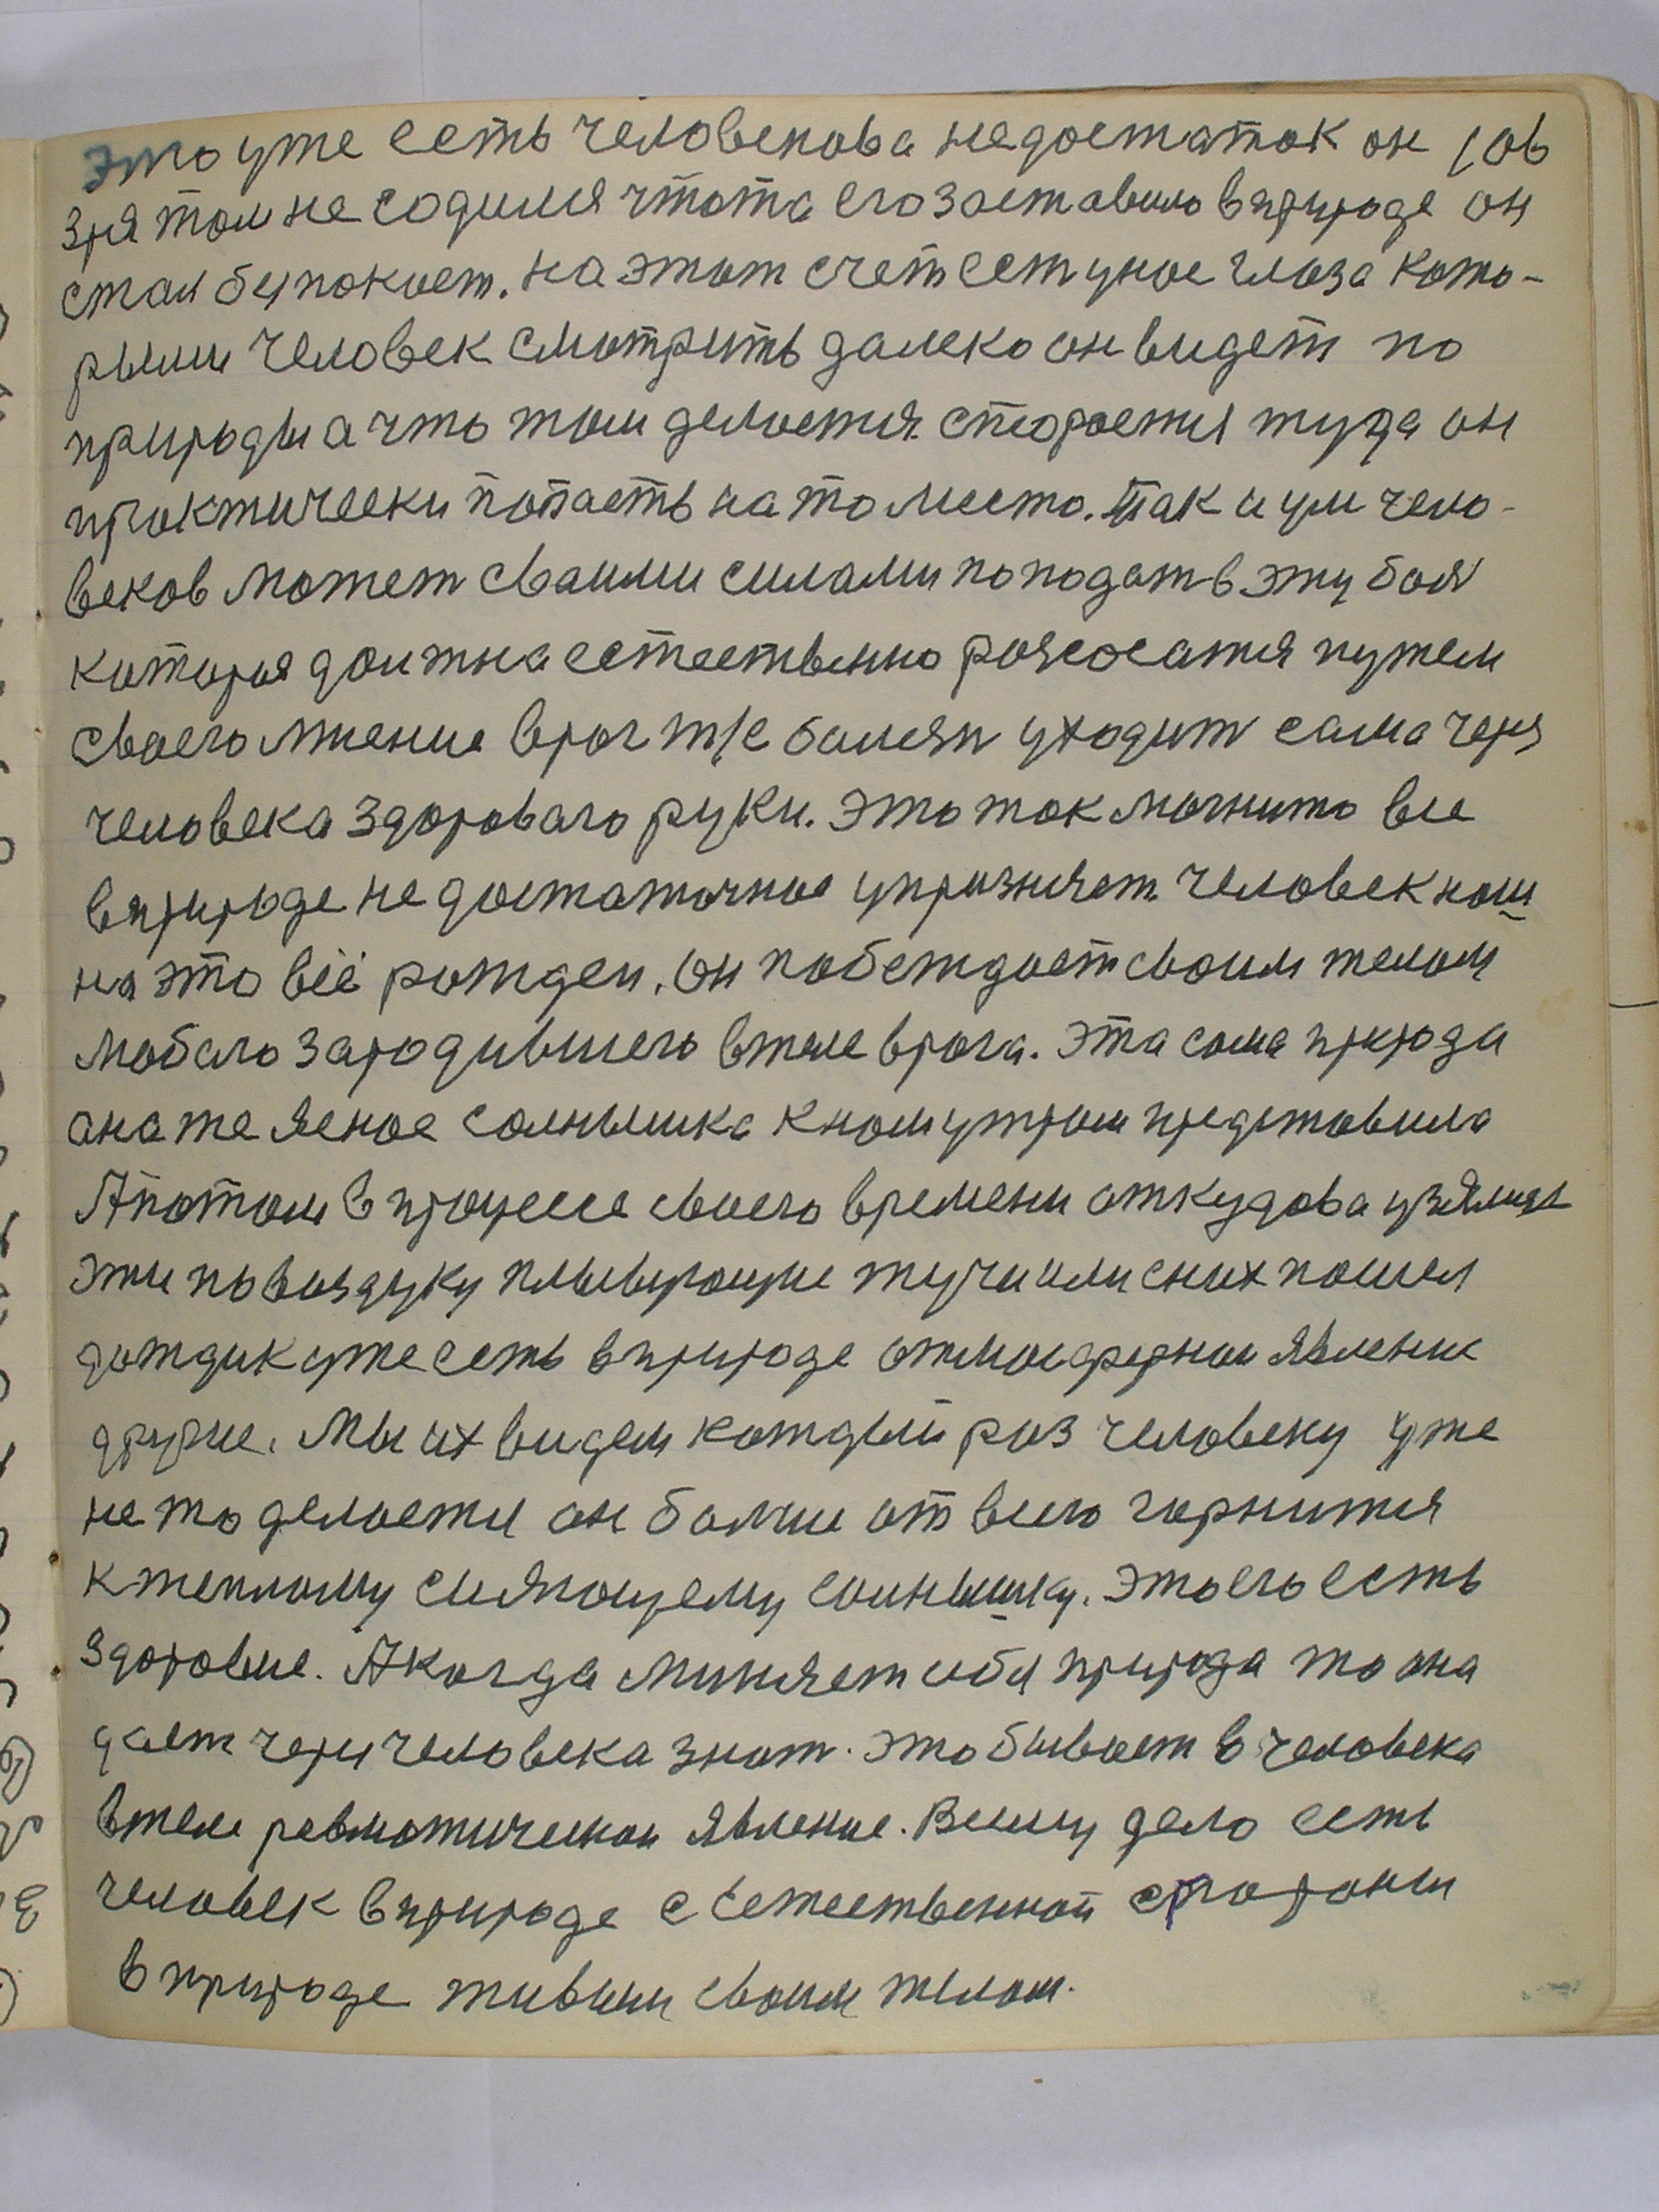 это уже есть человекова недостаток он
зря там не содился чтота его заставило в природе он
стал беспокоет. на этот счет есть уное глаза кото-
рыми человек смотрить далеко он видет по
природы а что там делается. стораетися туда он
practически попасть на то место. Так и ум чело-
веков может сваими силами поподать в эту боль
которая должна естественно рассосатся путем
своего мнение враг т/е балезн уходит сама через
человека здороваго руки. Это ток могнито все
в природе не достаточное упризняет. человек наш
на это всё рожден. он побеждает своим телом
любаго зародившего в теле врага. Эта сама природа
она же ясное солнышка к нам утром представила
А потом в процессе своего времени откудова узялися
эти по воздуху плывущие тучи или с них пошел
дождик уже есть в природе атмосфернои явление
другие. Мы их видем каждый раз человеку уже
не то делается он болше от всего горнится
к теплому сияющему солнышку. Это его есть
здоровие. А когда миняет себя природа то она
дает через человека знат. это бывает в человека
в теле ревматическои явление. Всему дело есть
человек в природе с естественной стороны
в природе живым своим телом.